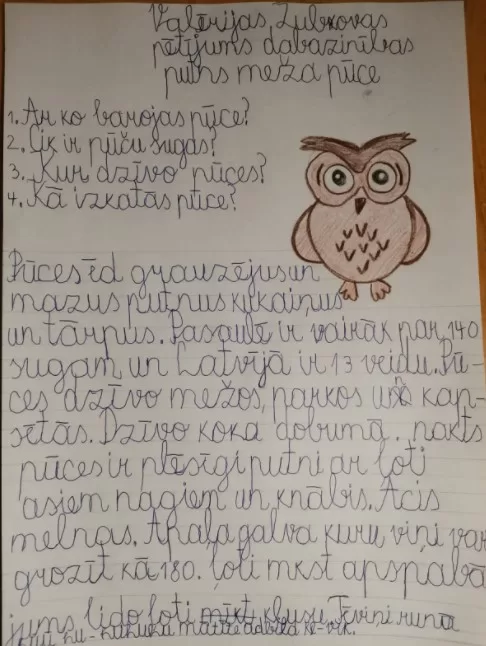 Valērijas Zubkovas
pētījums dabazinības
putns meža pūce
1. Ar ko barojas pūce?
2. Cik ir pūču sugas?
3. Kur dzīvo pūces?
4. Kā izkatās pūce?
Pūces ēd grauzējus un
mazus putnus kukaiņus
un tārpus. Pasaulē ir vairāk par 140
sugam un Latvijā ir 13 veidu. Pū-
ces dzīvo mežos, parkos un kap-
sētās. Dzīvo koka dobumā. nakts
pūces ir plēsīgi putni ar ļoti
asiem nagiem un knābis. Acis
melnas. Apaļa galva kuru viņi var
grozīt kā 180. ļoti mkst apspalvā
jums lido ļoti klusu. Tēviņi runā